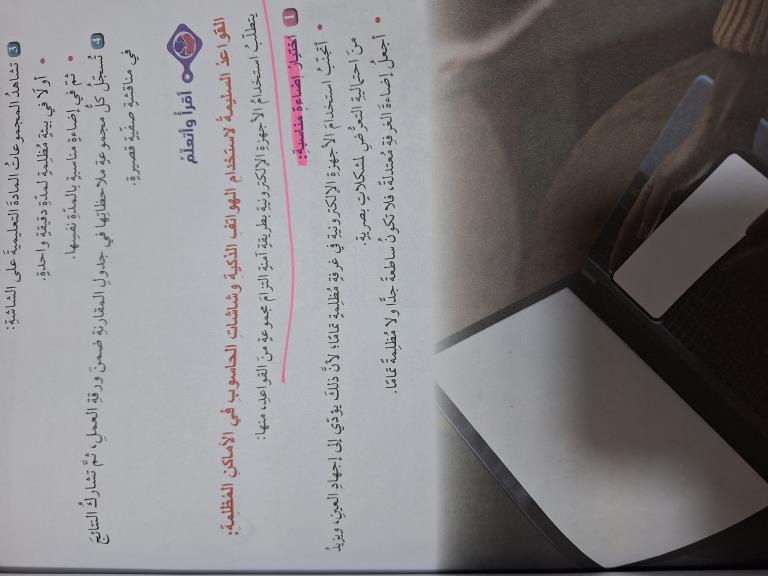 3 تشاهدُ المجموعاتُ المادةَ التعليميةَ على الشاشةِ:
• أولًا في بيئةٍ مُظلِمةٍ لمدّةِ دقيقةٍ واحدةٍ.
• ثمّ في إضاءةٍ مناسبةٍ بالمدّةِ نفسِها.
4 تُسجّلُ كلُّ مجموعةٍ ملاحظاتِها في جدولِ المقارنةِ ضمنَ ورقةِ العملِ، ثمَّ تشاركُ النتائجَ
في مناقشةٍ صفّيةٍ قصيرةٍ.
أقرأُ وأتعلّمُ
القواعدُ السليمةُ لاستخدامِ الهواتفِ الذكيةِ وشاشاتِ الحاسوبِ في الأماكنِ المُظلِمةِ:
يتطلّبُ استخدامُ الأجهزةِ الإلكترونيةِ بطريقةٍ آمنةٍ التزامَ مجموعةٍ منَ القواعدِ، منها:
1 اختيارُ إضاءةٍ مناسبةٍ:
• أتجنّبُ استخدامَ الأجهزةِ الإلكترونيةِ في غرفةٍ مُظلِمةٍ تمامًا؛ لأنَّ ذلكَ يؤدّي إلى إجهادِ العينِ، ويزيدُ
منَ احتماليةِ التعرُّضِ لمشكلاتٍ بصريةٍ.
• أجعلُ إضاءةَ الغرفةِ مُعتدلةً، فلا تكونُ ساطعةً جدًّا ولا مُظلِمةً تمامًا.